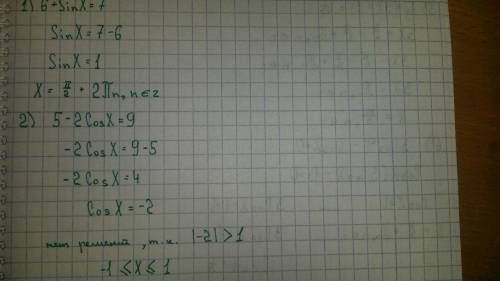 1) 6+SinX=7
SinX=7-6
SinX=1
X= π/2 + 2πn, n∈z
2) 5-2CosX=9
-2CosX=9-5
-2CosX=4
CosX=-2
нет решений, т.к. |-2|>1
-1≤X≤1